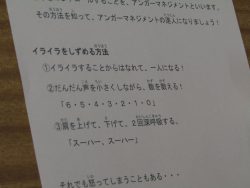 その方法を知って、アンガーマネジメントの達人になりましょう！
イライラをしずめる方法
①イライラすることからはなれて、一人になる！
②だんだん声を小さくしながら、数を数える！
「6・5・4・3・2・1・0」
③肩を上げて、下げて、2回深呼吸する。
「スーハー、スーハー」
それでも怒ってしまうこともある・・・